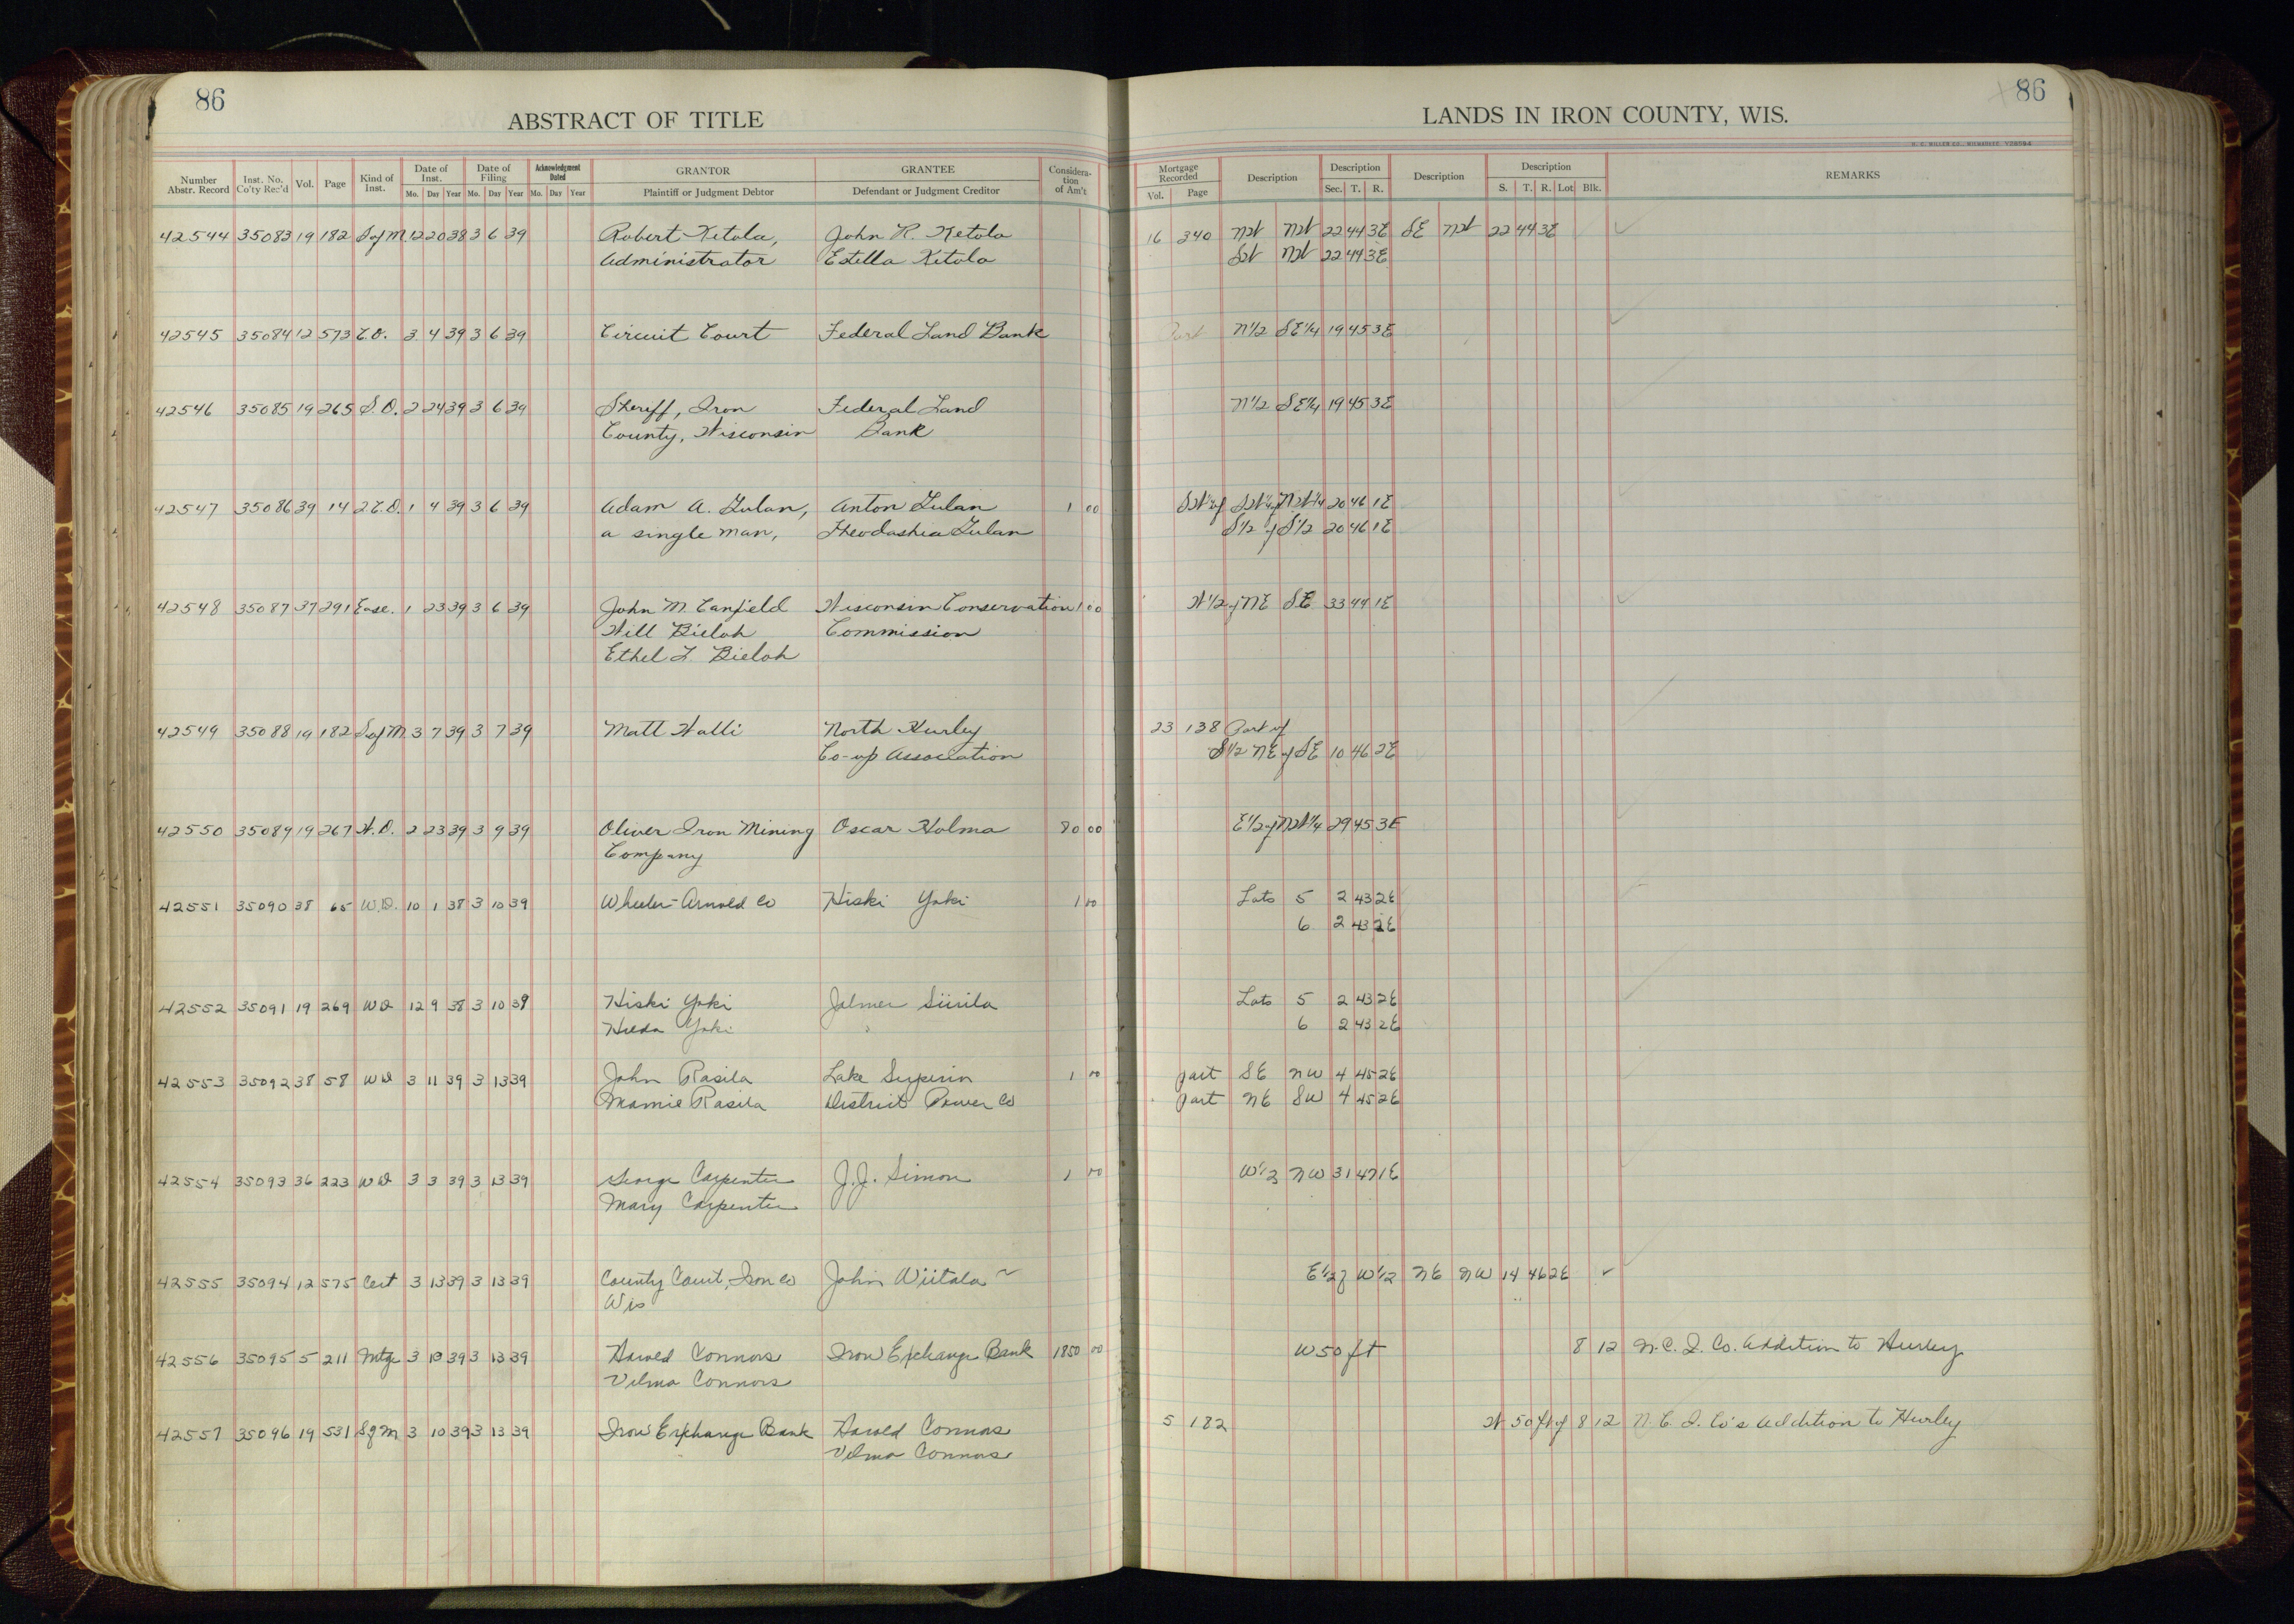 86
ABSTRACT OF TITLE
Number Abstr. Record | Inst. No. Co'ty Rec'd | Vol. | Page | Kind of Inst. | Date of Inst. Mo. Day Year | Date of Filing Mo. Day Year | Acknowledgment Dated Mo. Day Year | GRANTOR Plaintiff or Judgment Debtor | GRANTEE Defendant or Judgment Creditor | Consideration of Am't
42544 35083 19 182 S of M 12 20 38 3 6 39 Robert Ketola, John R. Ketola
Administrator Estella Ketola
42545 35084 12 573 C.O. 3 4 39 3 6 39 Circuit Court Federal Land Bank
42546 35085 19 265 S.D. 2 24 39 3 6 39 Sheriff, Iron Federal Land
County, Wisconsin Bank
42547 35086 39 14 2.C.D. 1 4 39 3 6 39 Adam A. Zulan, Anton Zulan 1 00
a single man, Theodashea Zulan
42548 35087 37 291 Ease. 1 23 39 3 6 39 John M. Canfield Wisconsin Conservation 1 00
Will Bieloh Commission
Ethel L. Bieloh
42549 35088 19 182 S of M 3 7 39 3 7 39 Matt Walli North Hurley
Co-op Association
42550 35089 19 267 W.D. 2 23 39 3 9 39 Oliver Iron Mining Oscar Holma 80 00
Company
42551 35090 38 65 W.D. 10 1 38 3 10 39 Wheeler-Arnold Co Hiski Yoki 1 00
42552 35091 19 269 WD 12 9 38 3 10 39 Hiski Yoki Jalmer Siirila
Hilda Yoki
42553 35092 38 58 WD 3 11 39 3 13 39 John Rasila Lake Superior 1 00
Mamie Rasila District Power Co
42554 35093 36 223 WD 3 3 39 3 13 39 George Carpenter J.J. Simon 1 00
Mary Carpenter
42555 35094 12 575 Cert 3 13 39 3 13 39 County Court, Iron Co John Wiitala
Wis
42556 35095 5 211 Mtge 3 10 39 3 13 39 Harold Connors Iron Exchange Bank 1850 00
Velma Connors
42557 35096 19 531 S of M 3 10 39 3 13 39 Iron Exchange Bank Harold Connors
Velma Connors
86
LANDS IN IRON COUNTY, WIS.
Mortgage Recorded Vol. Page | Description | Description Sec. T. R. | Description | Description S. T. R. Lot Blk. | REMARKS
16 340 NW NW 22 44 3E SE NW 22 44 3E
SW NW 22 44 3E
Part N1/2 SE1/4 19 45 3E
N1/2 SE1/4 19 45 3E
SW1/4 of SW1/4 of NW1/4 20 46 1E
S1/2 of S1/2 20 46 1E
W1/2 of NE SE 33 44 1E
23 138 Part of
S1/2 NE of SE 10 46 2E
E1/2 of NW1/4 29 45 3E
Lots 5 2 43 2E
6 2 43 2E
Lots 5 2 43 2E
6 2 43 2E
part SE NW 4 45 2E
part NE SW 4 45 2E
W1/2 NW 31 47 1E
E1/2 of W1/2 NE NW 14 46 2E ✓
W 50 ft 8 12 N.C.I. Co. Addition to Hurley
5 182 W 50 ft of 8 12 N.C.I. Co's Addition to Hurley